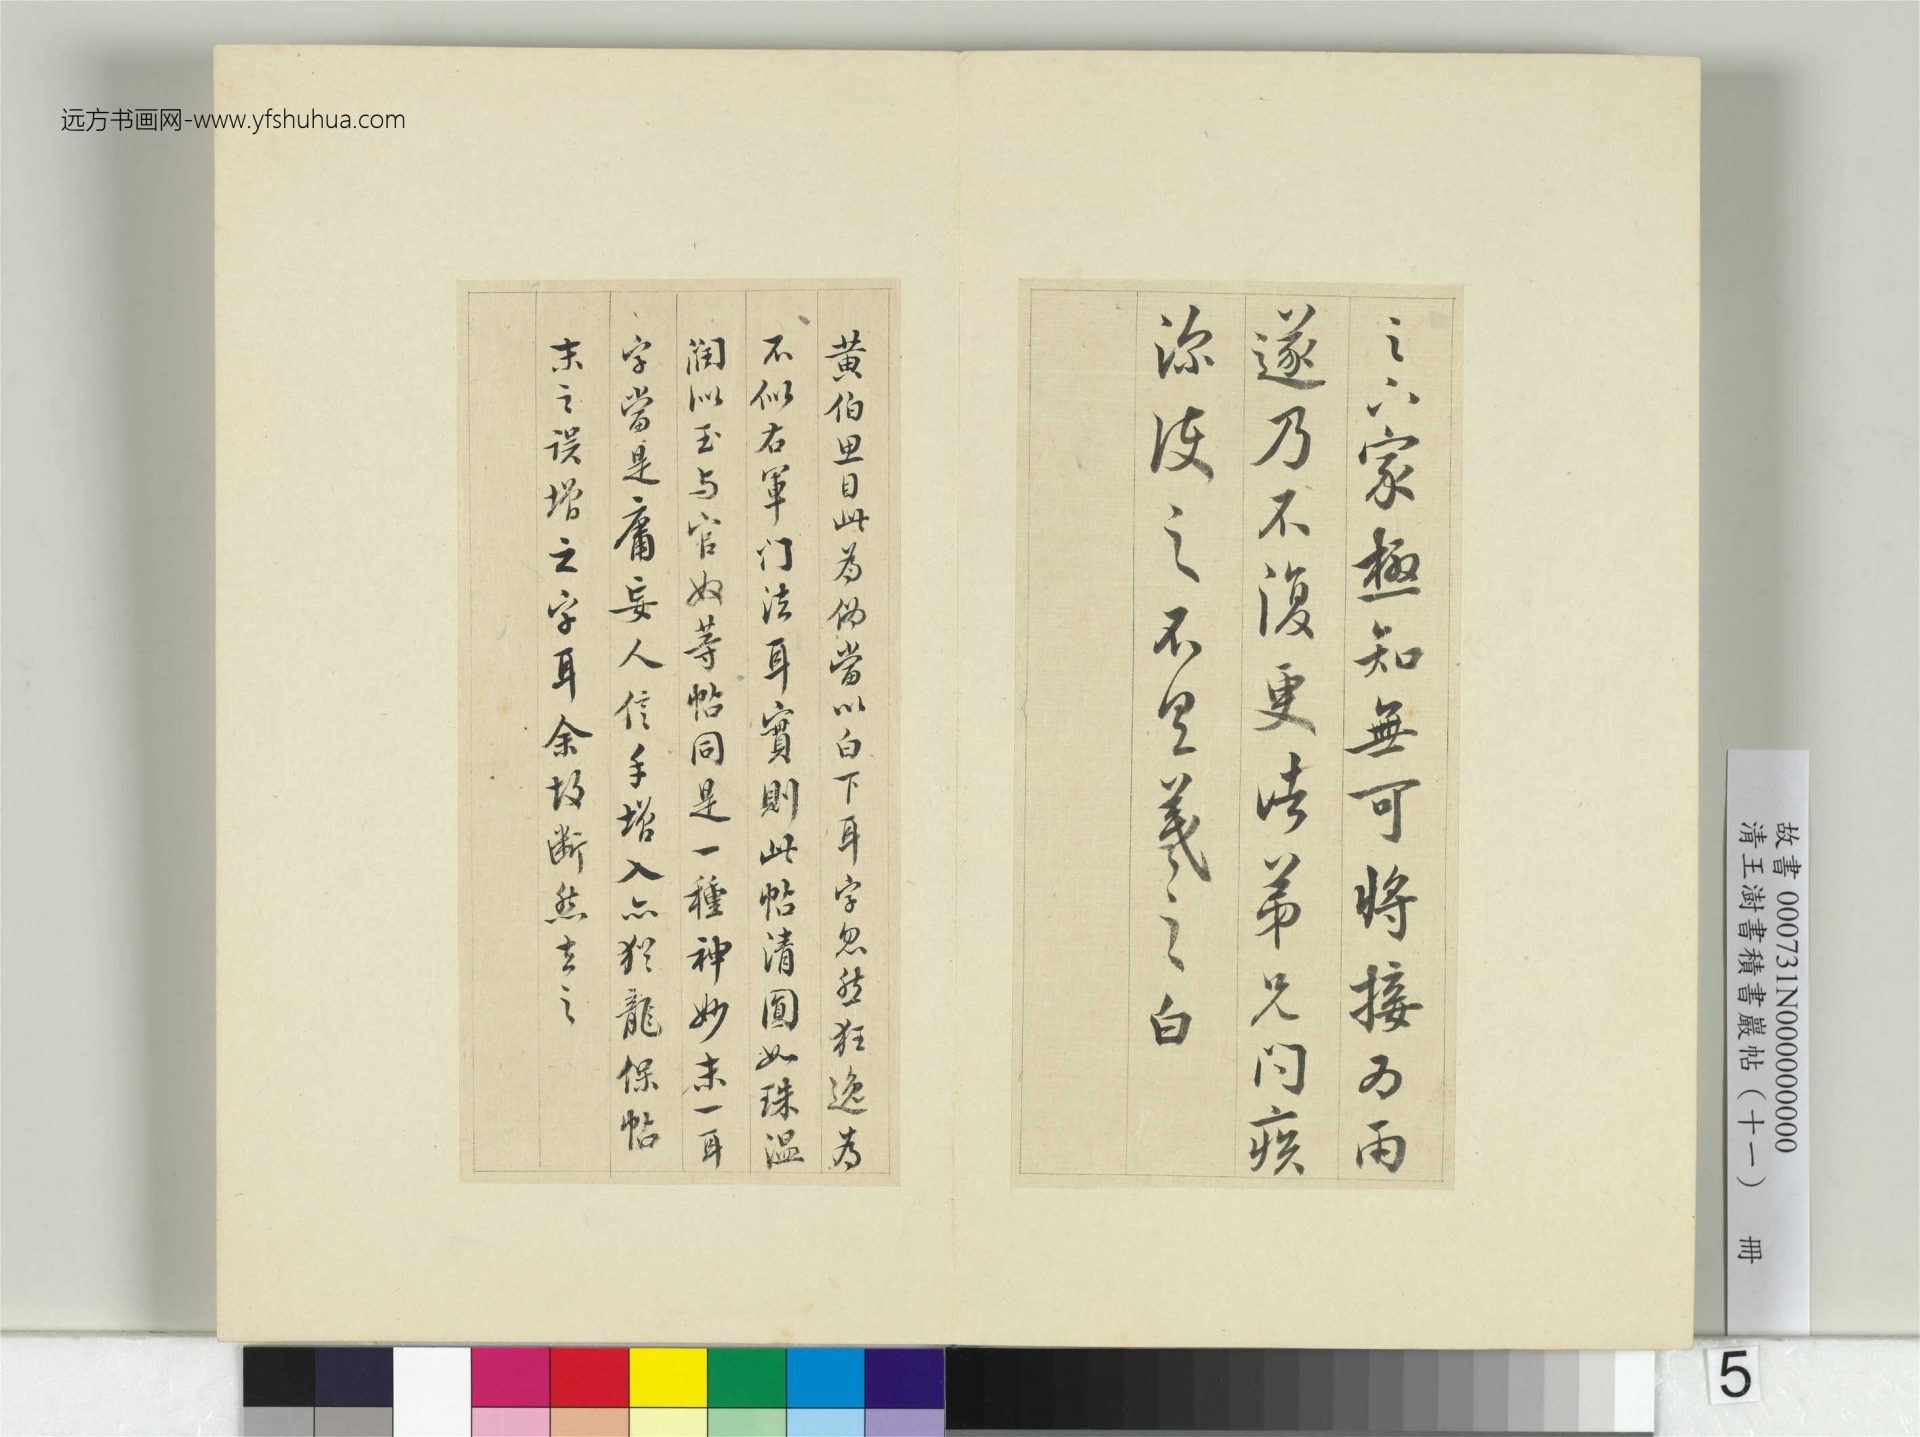 远方书画网-www.yfshuhua.com
之六家極知無可將接為雨
遂乃不復更諸弟兄問疾
深護之不具羲之白
黄伯思目此為偽當以白下耳字忽然狂逸為
不似右軍门法耳實則此帖清圓如珠温
潤似玉与官奴等帖同是一種神妙末一耳
字當是庸妄人信手增入亦猶龍保帖
末之误增之字耳余故断然去之
故書 000731N000000000
清王澍書積書巖帖（十一） 冊
5